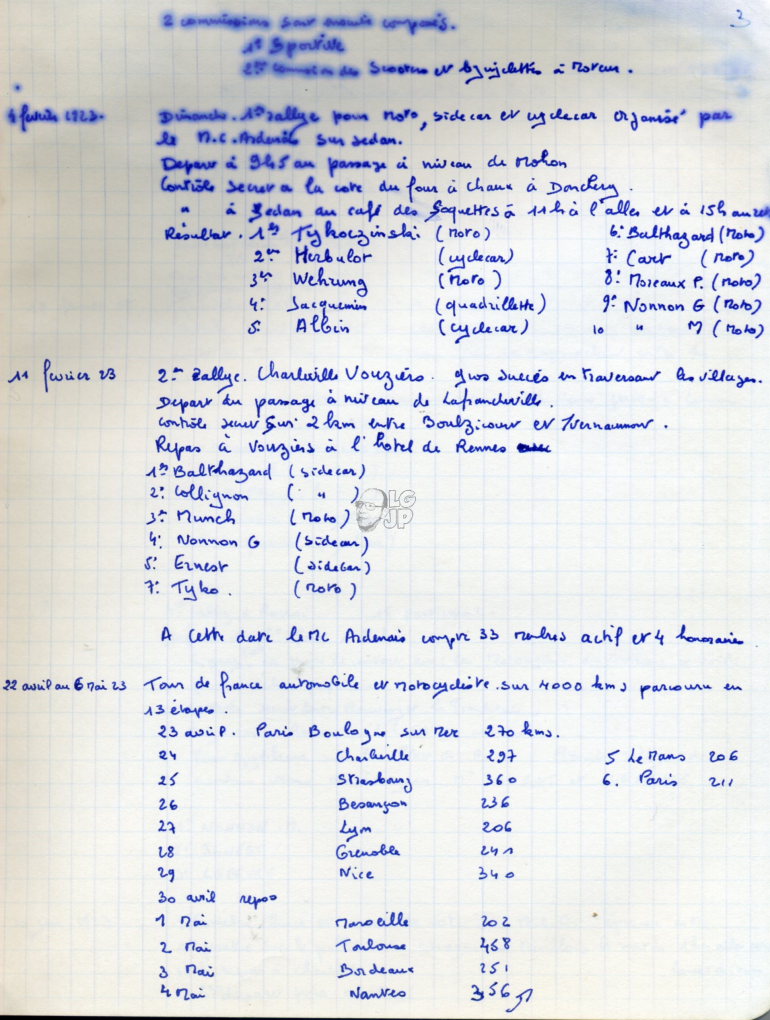 3
2 commissions sont ensuite composés.
1º Sportive
2em commission des Scooters et bycyclettes à moteur.
4 fevrier 1923. Dimanche. 1er rallye pour moto, sidecar et cyclecar organisé par
le M.C. Ardenais sur Sedan.
Depart à 9h45 au passage à niveau de Mohon
Contrôle secret a la cote du four à chaux à Donchery.
" à Sedan au café des Soquettes à 11h à l'aller et à 15h au retour
Résultat. 1er Tykoczinski (moto) 6e Balthazard (moto)
2em Herbulot (cyclecar) 7e Cart (moto)
3em Wehrung (moto) 8e Moreaux P. (moto)
4e Jacquemin (quadrillette) 9e Nonnon G (moto)
5e Albin (cyclecar) 10 " M (moto)
11 fevrier 23 2em rallye. Charleville Vouziers. gros succés en traversant les villages.
Depart du passage à niveau de Lafrancheville.
contrôle secret sur 2 km entre Boulzicourt et Yvernaumont.
Repas à Vouziers à l'hotel de Rennes
1er Balthazard (sidecar)
2e Collignon ( " )
3em Munch (moto)
4e Nonnon G (sidecar)
5e Ernest (sidecar)
7e Tyko. (moto)
LG
JP
A cette date le MC Ardenais compte 33 membres actif et 4 honoraires
22 avril au 6 Mai 23 Tour de france automobile et motocycliste sur 4000 kms parcouru en
13 étapes.
23 avril. Paris Boulogne sur Mer 270 kms.
24 Charleville 297 5 Le Mans 206
25 Strasbourg 360 6. Paris 211
26 Besançon 236
27 Lyon 206
28 Grenoble 241
29 Nice 340
30 avril repos
1 Mai Marseille 202
2 Mai Toulouse 458
3 Mai Bordeaux 251
4 Mai Nantes 356